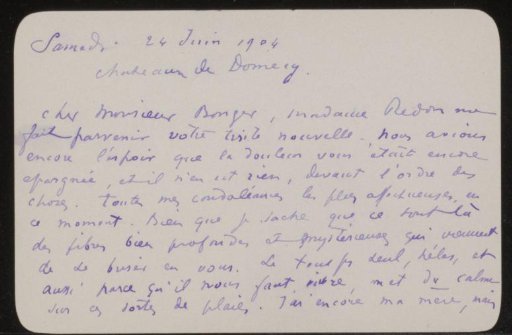 Samedi. 24 Juin 1904
chateaux de Domecy.
cher Monsieur Bonger, madame Redon me
fait parvenir votre triste nouvelle. nous avions
encore l'espoir que la douleur vous était encore
epargnée, et il n'en est rien, devant l'ordre des
choses. toutes mes condoléances les plus affectueuses, en
ce moment. Bien que je sache que ce sont là
des fibres bien profondes et mystérieuses qui viennent
de se briser en vous. Le temps seul, hélas, et
aussi parce qu'il nous faut vivre, met du calme
sur ces sortes de plaies. J'ai encore ma mère, mais